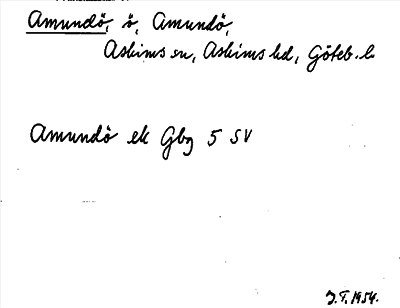 Amundö, ö, Amundö,
Askims sn, Askims hd, Göteb. l.
Amundö ek Gbg 5 SV
J.T. 1954.